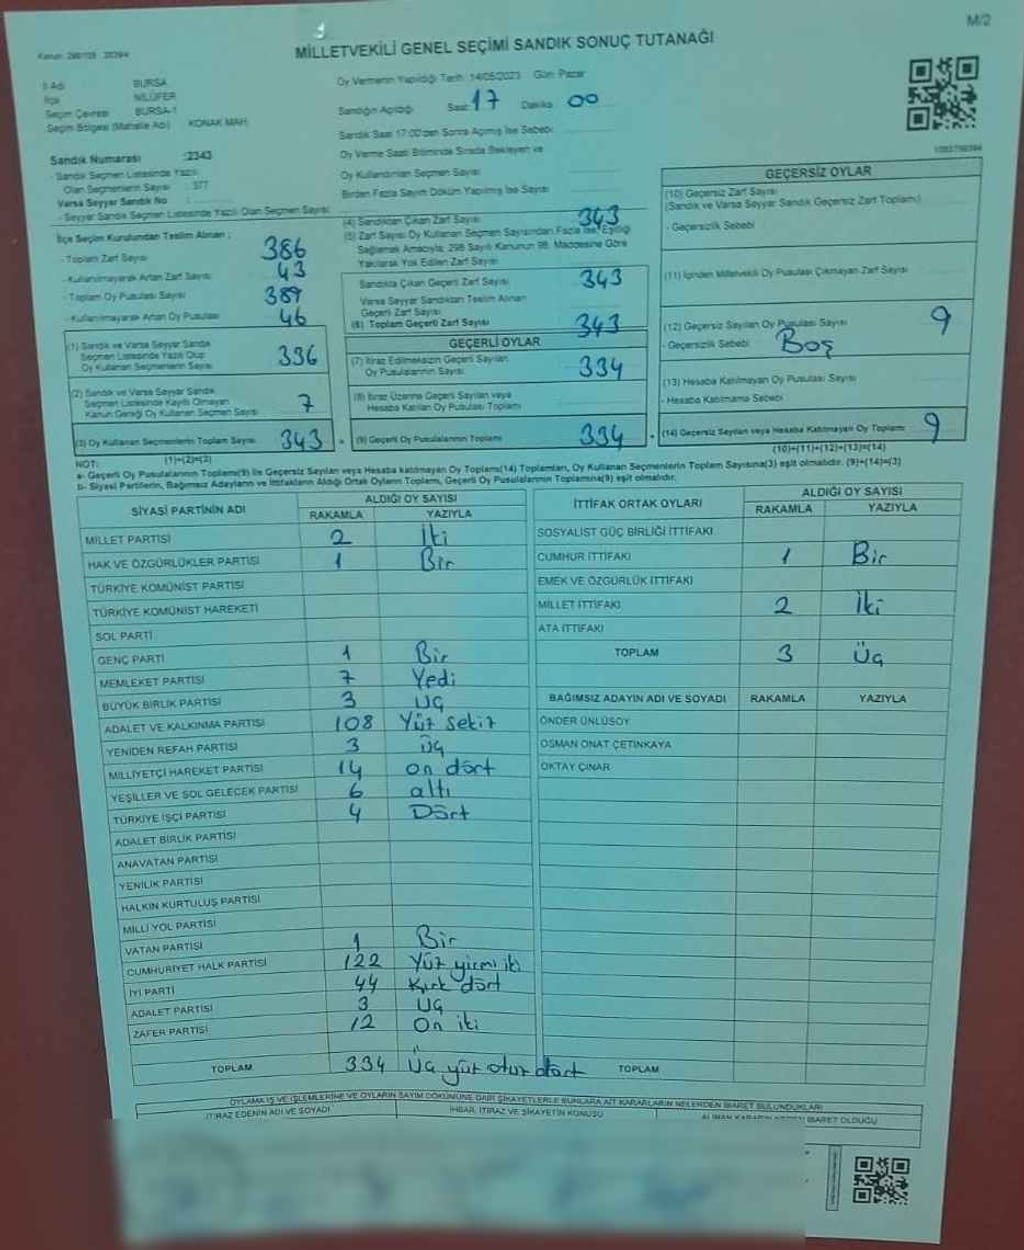 M/2
MİLLETVEKİLİ GENEL SEÇİMİ SANDIK SONUÇ TUTANAĞI
İl Adı BURSA
İlçe NİLÜFER
Seçim Çevresi BURSA-1
Seçim Bölgesi (Mahalle Adı) KONAK MAH.
Oy Vermenin Yapıldığı Tarih :14/05/2023 Gün: Pazar
Sandığın Açıldığı Saat 17 Dakika 00
Sandık Saat 17:00'den Sonra Açılmış İse Sebebi
Oy Verme Saati Bitiminde Sırada Bekleyen ve
Oy Kullandırılan Seçmen Sayısı
Birden Fazla Sayım Döküm Yapılmış İse Sayısı
Sandık Numarası :2343
- Sandık Seçmen Listesinde Yazılı
Olan Seçmenlerin Sayısı : 377
Varsa Seyyar Sandık No :
- Seyyar Sandık Seçmen Listesinde Yazılı Olan Seçmen Sayısı
İlçe Seçim Kurulundan Teslim Alınan :
- Toplam Zarf Sayısı 386
- Kullanılmayarak Artan Zarf Sayısı 43
- Toplam Oy Pusulası Sayısı 389
- Kullanılmayarak Artan Oy Pusulası 46
(1) Sandık ve Varsa Seyyar Sandık
Seçmen Listesinde Yazılı Olup
Oy Kullanan Seçmenlerin Sayısı 336
(2) Sandık ve Varsa Seyyar Sandık
Seçmen Listesinde Kayıtlı Olmayan
Kanun Gereği Oy Kullanan Seçmen Sayısı 7
(3) Oy Kullanan Seçmenlerin Toplam Sayısı 343
(1)+(2)=(3)
(4) Sandıktan Çıkan Zarf Sayısı 343
(5) Zarf Sayısı Oy Kullanan Seçmen Sayısından Fazla İse, Eşitliği
Sağlamak Amacıyla, 298 Sayılı Kanunun 98. Maddesine Göre
Yakılarak Yok Edilen Zarf Sayısı
Sandıkta Çıkan Geçerli Zarf Sayısı 343
Varsa Seyyar Sandıktan Teslim Alınan
Geçerli Zarf Sayısı
(6) Toplam Geçerli Zarf Sayısı 343
GEÇERLİ OYLAR
(7) İtiraz Edilmeksizin Geçerli Sayılan
Oy Pusulalarının Sayısı 334
(8) İtiraz Üzerine Geçerli Sayılan veya
Hesaba Katılan Oy Pusulası Toplamı
(9) Geçerli Oy Pusulalarının Toplamı 334
GEÇERSİZ OYLAR
(10) Geçersiz Zarf Sayısı
(Sandık ve Varsa Seyyar Sandık Geçersiz Zarf Toplamı)
- Geçersizlik Sebebi
(11) İçinden Milletvekili Oy Pusulası Çıkmayan Zarf Sayısı
(12) Geçersiz Sayılan Oy Pusulası Sayısı 9
- Geçersizlik Sebebi Boş
(13) Hesaba Katılmayan Oy Pusulası Sayısı
- Hesaba Katılmama Sebebi
(14) Geçersiz Sayılan veya Hesaba Katılmayan Oy Toplamı 9
(10)+(11)+(12)+(13)=(14)
NOT:
a- Geçerli Oy Pusulalarının Toplamı(9) ile Geçersiz Sayılan veya Hesaba katılmayan Oy Toplamı(14) Toplamları, Oy Kullanan Seçmenlerin Toplam Sayısına(3) eşit olmalıdır. (9)+(14)=(3)
b- Siyasi Partilerin, Bağımsız Adayların ve İttifakların Aldığı Ortak Oyların Toplamı, Geçerli Oy Pusulalarının Toplamına(9) eşit olmalıdır.
SİYASİ PARTİNİN ADI ALDIĞI OY SAYISI
RAKAMLA YAZIYLA
MİLLET PARTİSİ 2 İki
HAK VE ÖZGÜRLÜKLER PARTİSİ 1 Bir
TÜRKİYE KOMÜNİST PARTİSİ
TÜRKİYE KOMÜNİST HAREKETİ
SOL PARTİ
GENÇ PARTİ 1 Bir
MEMLEKET PARTİSİ 7 Yedi
BÜYÜK BİRLİK PARTİSİ 3 Üç
ADALET VE KALKINMA PARTİSİ 108 Yüz sekiz
YENİDEN REFAH PARTİSİ 3 üç
MİLLİYETÇİ HAREKET PARTİSİ 14 on dört
YEŞİLLER VE SOL GELECEK PARTİSİ 6 altı
TÜRKİYE İŞÇİ PARTİSİ 4 Dört
ADALET BİRLİK PARTİSİ
ANAVATAN PARTİSİ
YENİLİK PARTİSİ
HALKIN KURTULUŞ PARTİSİ
MİLLİ YOL PARTİSİ
VATAN PARTİSİ 1 Bir
CUMHURİYET HALK PARTİSİ 122 Yüz yirmi iki
İYİ PARTİ 44 Kırk dört
ADALET PARTİSİ 3 Üç
ZAFER PARTİSİ 12 On iki
TOPLAM 334 Üç yüz otuz dört
İTTİFAK ORTAK OYLARI ALDIĞI OY SAYISI
RAKAMLA YAZIYLA
SOSYALİST GÜÇ BİRLİĞİ İTTİFAKI
CUMHUR İTTİFAKI 1 Bir
EMEK VE ÖZGÜRLÜK İTTİFAKI
MİLLET İTTİFAKI 2 İki
ATA İTTİFAKI
TOPLAM 3 Üç
BAĞIMSIZ ADAYIN ADI VE SOYADI RAKAMLA YAZIYLA
ÖNDER ÜNLÜSOY
OSMAN ONAT ÇETİNKAYA
OKTAY ÇINAR
TOPLAM
OYLAMA İŞ VE İŞLEMLERİNE VE OYLARIN SAYIM DÖKÜMÜNE DAİR ŞİKAYETLERLE BUNLARA AİT KARARLARIN NELERDEN İBARET BULUNDUKLARI
İTİRAZ EDENİN ADI VE SOYADI İHBAR, İTİRAZ VE ŞİKAYETİN KONUSU İBARET OLDUĞU